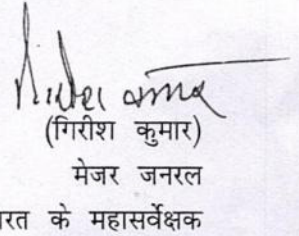 (गिरीश कुमार)
मेजर जनरल
भारत के महासर्वेक्षक